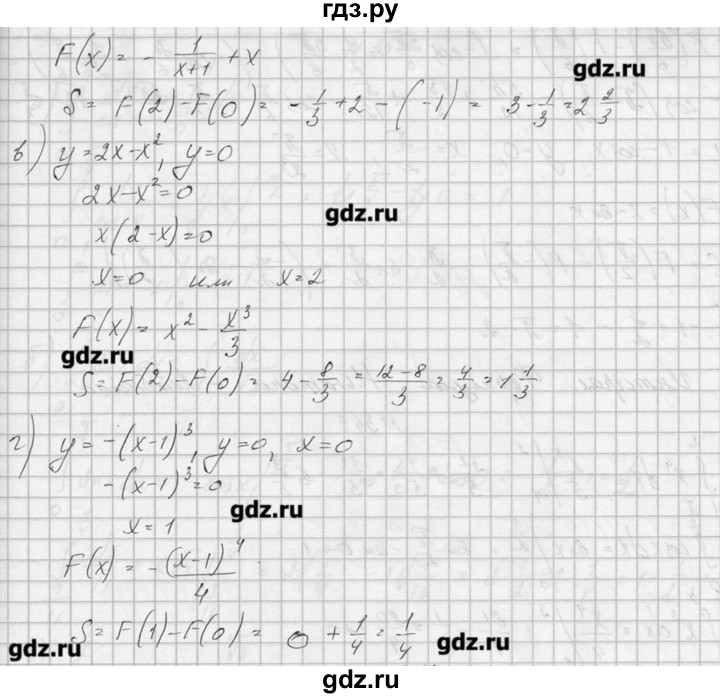 гдз.ру
F(x) = - 1/(x+1) + x
gdz.ru
S = F(2) - F(0) = - 1/3 + 2 - (-1) = 3 - 1/3 = 2 2/3
в) y = 2x - x², y = 0
2x - x² = 0
gdz.ru
x(2 - x) = 0
x = 0 или x = 2
F(x) = x² - x³/3
gdz.ru
S = F(2) - F(0) = 4 - 8/3 = (12 - 8)/3 = 4/3 = 1 1/3
г) y = -(x-1)³, y = 0, x = 0
-(x-1)³ = 0
gdz.ru
x = 1
F(x) = - (x-1)⁴/4
S = F(1) - F(0) = 0 + 1/4 = 1/4
gdz.ru
gdz.ru
gdz.ru